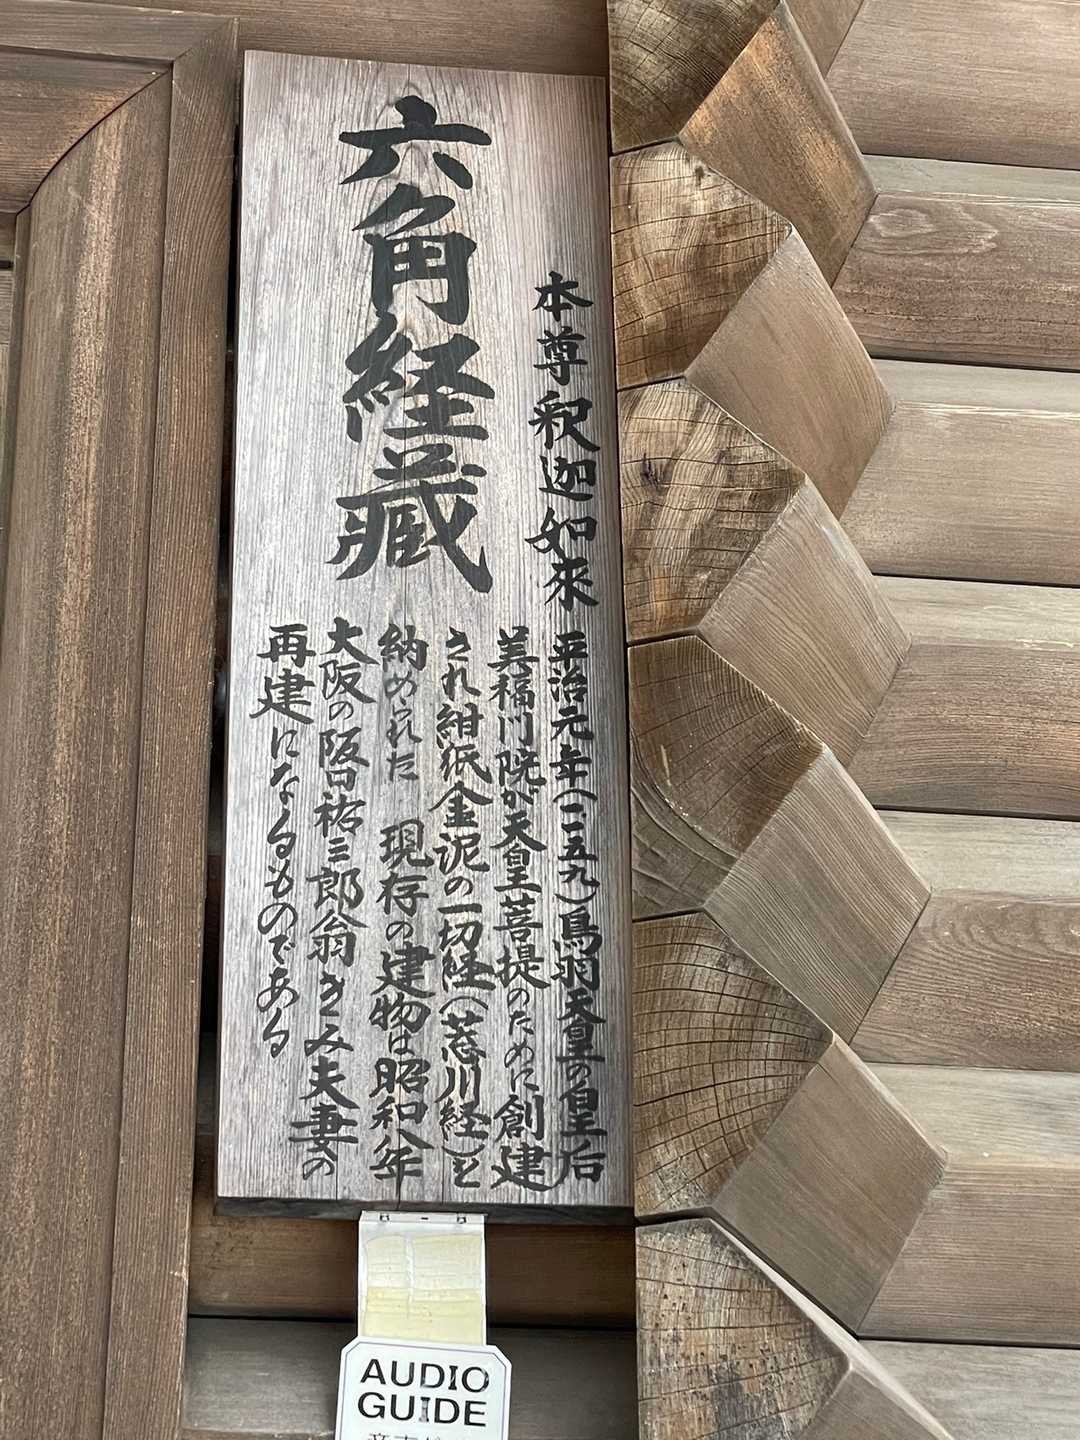 六角経蔵
本尊釈迦如来
平治元年(一一五九)鳥羽天皇の皇后
美福門院が天皇菩提のために創建
され紺紙金泥の一切経(荒川経)を
納められた 現存の建物は昭和八年
大阪の阪田祐三郎翁きみ夫妻の
再建になるものである
AUDIO
GUIDE